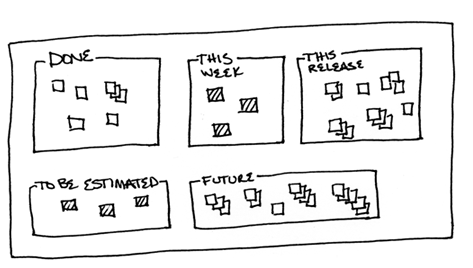 DONE
THIS
WEEK
THIS
RELEASE
TO BE ESTIMATED
FUTURE